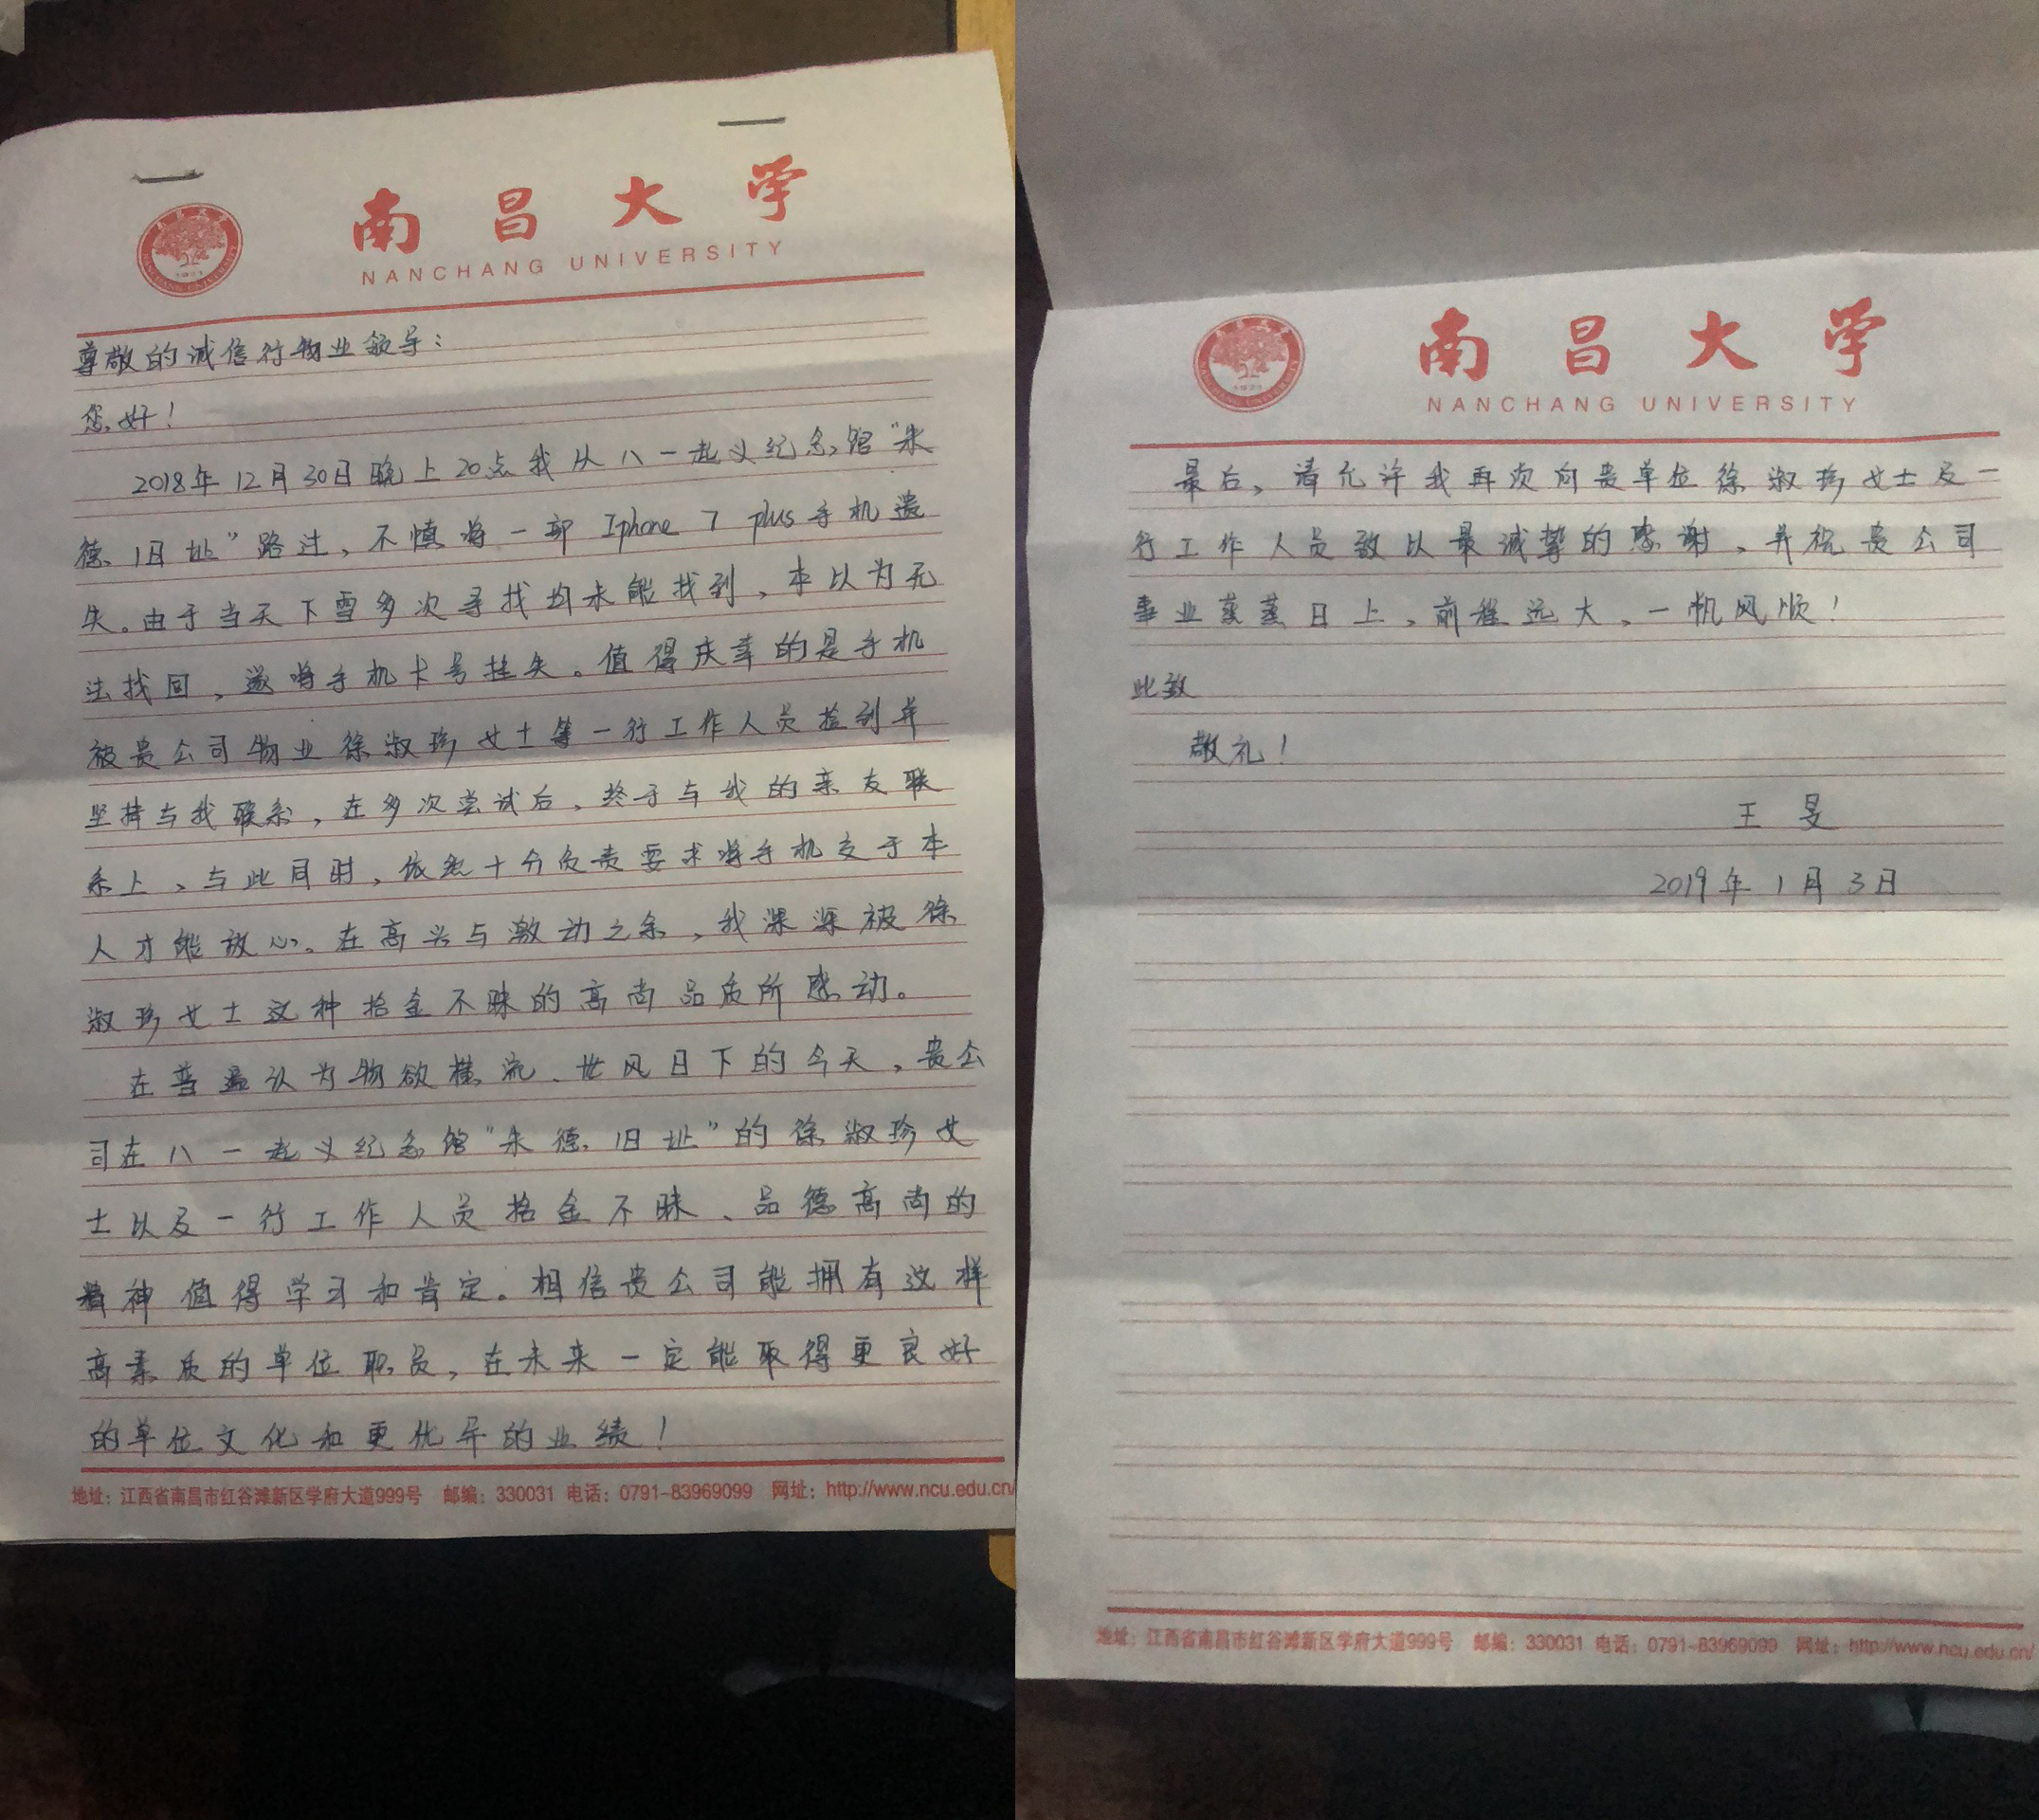 南昌大学
NANCHANG UNIVERSITY
尊敬的诚信行物业领导：
您好！
2018年12月30日晚上20点我从八一起义纪念馆“朱
德旧址”路过，不慎将一部Iphone 7 plus手机遗
失。由于当天下雪多次寻找均未能找到，本以为无
法找回，遂将手机卡号挂失。值得庆幸的是手机
被贵公司物业徐淑珍女士等一行工作人员捡到并
坚持与我联系，在多次尝试后，终于与我的亲友联
系上，与此同时，依然十分负责要求将手机交于本
人才能放心。在高兴与激动之余，我深深被徐
淑珍女士这种拾金不昧的高尚品质所感动。
在普遍认为物欲横流、世风日下的今天，贵公
司在八一起义纪念馆“朱德旧址”的徐淑珍女
士以及一行工作人员拾金不昧、品德高尚的
精神值得学习和肯定。相信贵公司能拥有这样
高素质的单位职员，在未来一定能取得更良好
的单位文化和更优异的业绩！
地址：江西省南昌市红谷滩新区学府大道999号 邮编：330031 电话：0791-83969099 网址：http://www.ncu.edu.cn/
南昌大学
NANCHANG UNIVERSITY
最后，请允许我再次向贵单位徐淑珍女士及一
行工作人员致以最诚挚的感谢，并祝贵公司
事业蒸蒸日上，前程远大，一帆风顺！
此致
敬礼！
王旻
2019年1月3日
地址：江西省南昌市红谷滩新区学府大道999号 邮编：330031 电话：0791-83969099 网址：http://www.ncu.edu.cn/